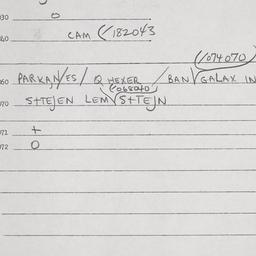 030 O
040 CAM (/182043
(/074070)
060 PARKAN/ES/ Q HEXER /BAN GALAX IN
(/068040)
070 S+TEJEN LEM S+TEJN
071 +
072 O